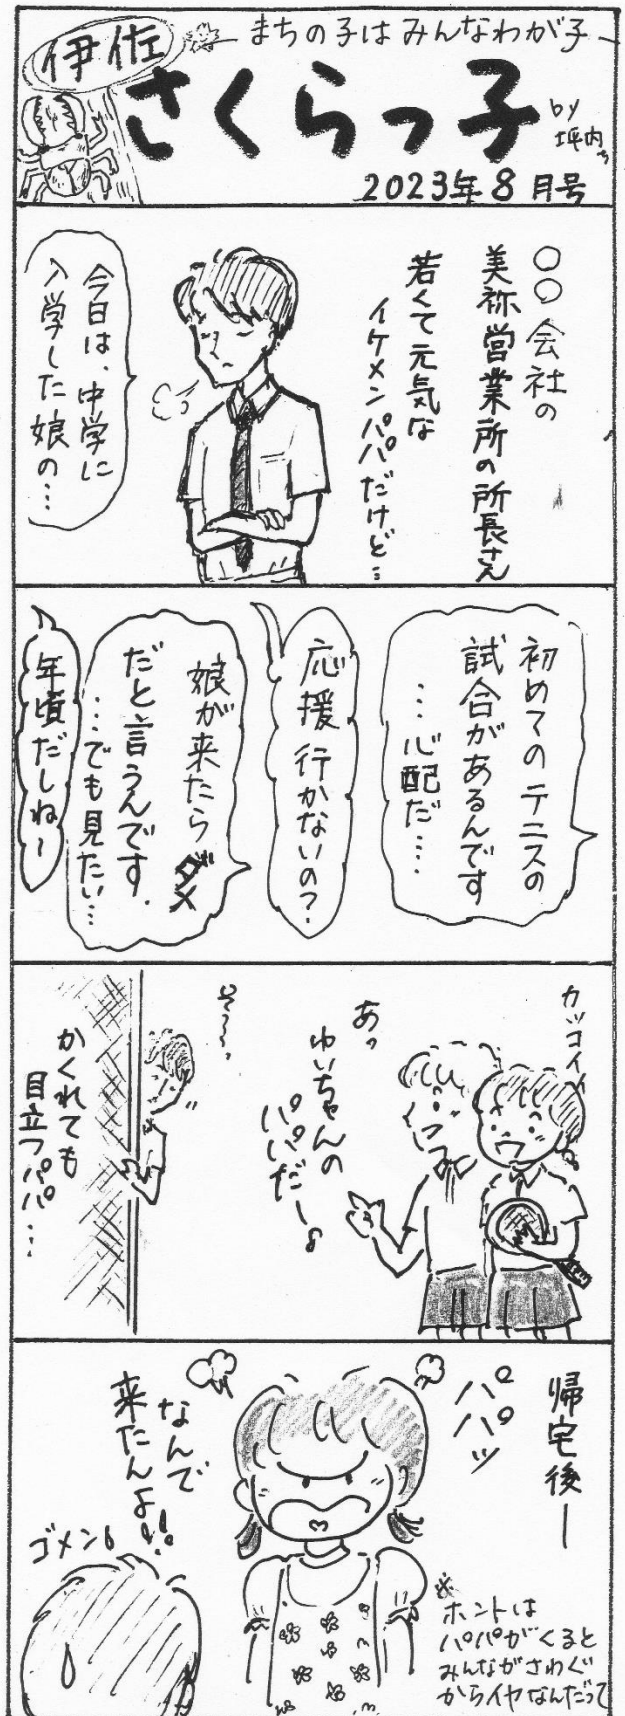 まちの子はみんなわが子
伊佐
さくらっ子
by
坪内
2023年8月号
〇〇会社の
美祢営業所の所長さん
若くて元気な
イケメンパパだけど…
今日は、中学に
入学した娘の…
初めてのテニスの
試合があるんです
…心配だ……
応援行かないの?
娘が来たらダメ
だと言うんです.
…でも見たい…
年頃だしね〜
カッコイイ
あっ
ゆいちゃんの
パパだー。
そ〜〜
かくれても
目立つパパ…
帰宅後ー
パパッ
なんで
来たんよ!!
ゴメン
※ホントは
パパがくると
みんながさわぐ
からイヤなんだって